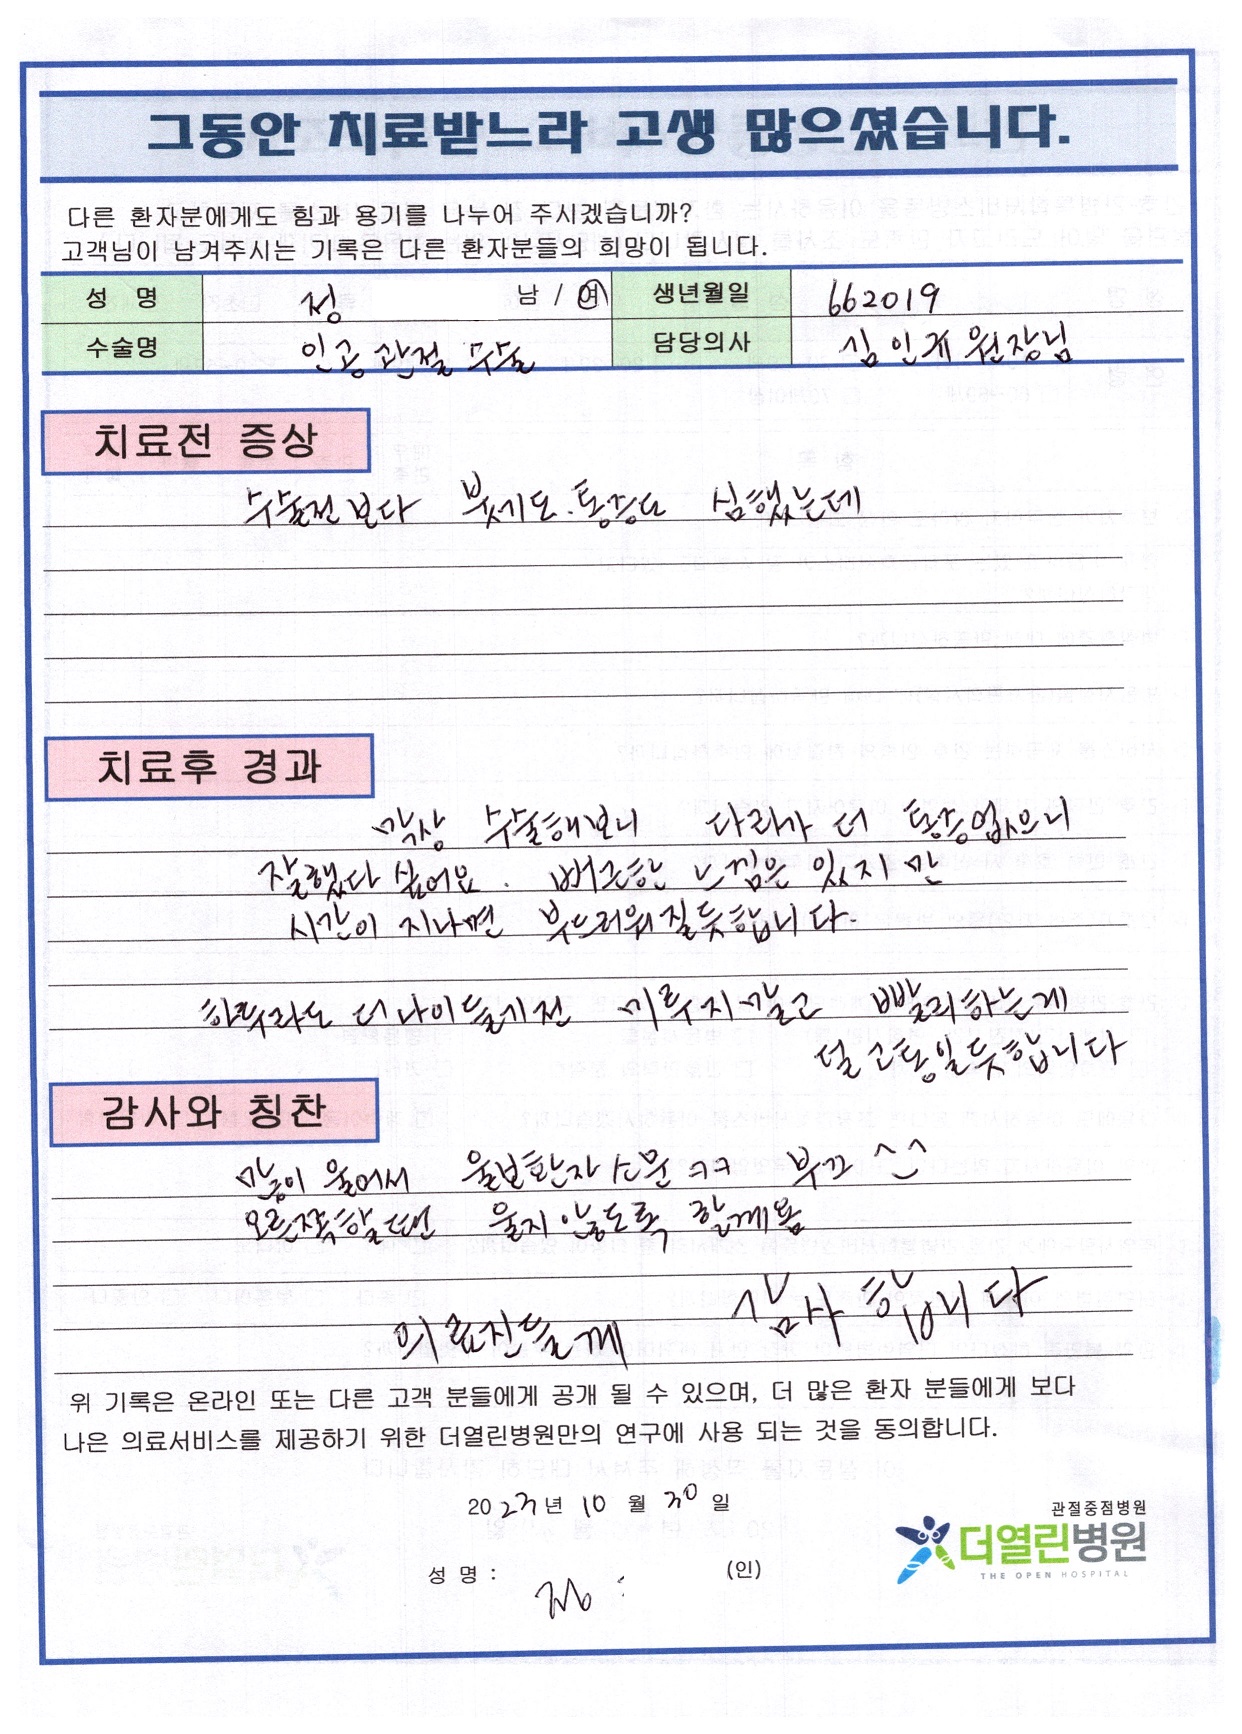 그동안 치료받느라 고생 많으셨습니다.
다른 환자분에게도 힘과 용기를 나누어 주시겠습니까?
고객님이 남겨주시는 기록은 다른 환자분들의 희망이 됩니다.
성 명 정 남 / 여 생년월일 662019
수술명 인공관절 수술 담당의사 김인계 원장님
치료전 증상
수술전보다 붓기도. 통증도 심했는데
치료후 경과
막상 수술해보니 다리가 더 통증없으니
잘했다 싶어요. 뻐근한 느낌은 있지만
시간이 지나면 부드러워질듯합니다.
하루라도 더 나이들기전 미루지말고 빨리하는게
덜 고통일듯합니다
감사와 칭찬
많이 울어서 울보환자 소문ㅋㅋ 부끄^^
오른쪽할땐 울지않도록 할께용
의료진들께 감사합니다
위 기록은 온라인 또는 다른 고객 분들에게 공개 될 수 있으며, 더 많은 환자 분들에게 보다
나은 의료서비스를 제공하기 위한 더열린병원만의 연구에 사용 되는 것을 동의합니다.
2023년 10 월 30일
관절중점병원
더열린병원
THE OPEN HOSPITAL
성 명 : 정 (인)